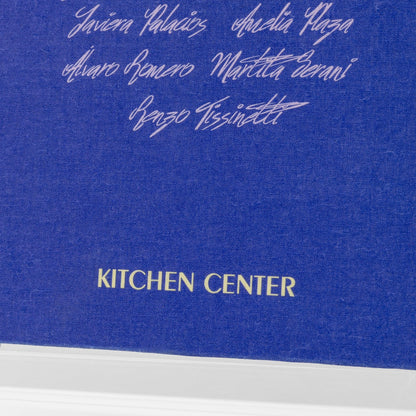 Javiera Palacios Amelia Plaza
Álvaro Romero Martita Serani
Renzo Tissinetti
KITCHEN CENTER